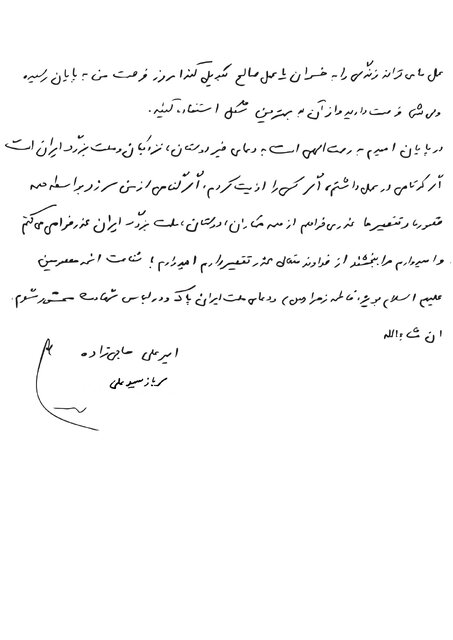 عمل ما می‌تواند زندگی را به خسران یا عمل صالح تبدیل کند امروز فرصت من به پایان رسیده
ولی شما فرصت دارید و از آن به بهترین شکل استفاده کنید.
در پایان امیدم به رحمت الهی است به دعای خیر دوستان، نزدیکان و ملت بزرگ ایران است
اگر کوتاهی در عمل داشتم، اگر کسی را اذیت کردم، اگر گناهی از من سر زد بواسطه همه
قصورها و تقصیرها عذر می‌خواهم از همه همکاران، دوستان، ملت بزرگ ایران عذرخواهی می‌کنم
و امیدوارم مرا ببخشند از خداوند متعال عذر تقصیر دارم امیدوارم با شفاعت ائمه معصومین
علیهم السلام بویژه فاطمه زهرا (س) و دعای ملت ایران پاک و در لباس شهادت محشور شوم.
ان شاءالله
امیرعلی حاجی‌زاده
سرباز سید علی